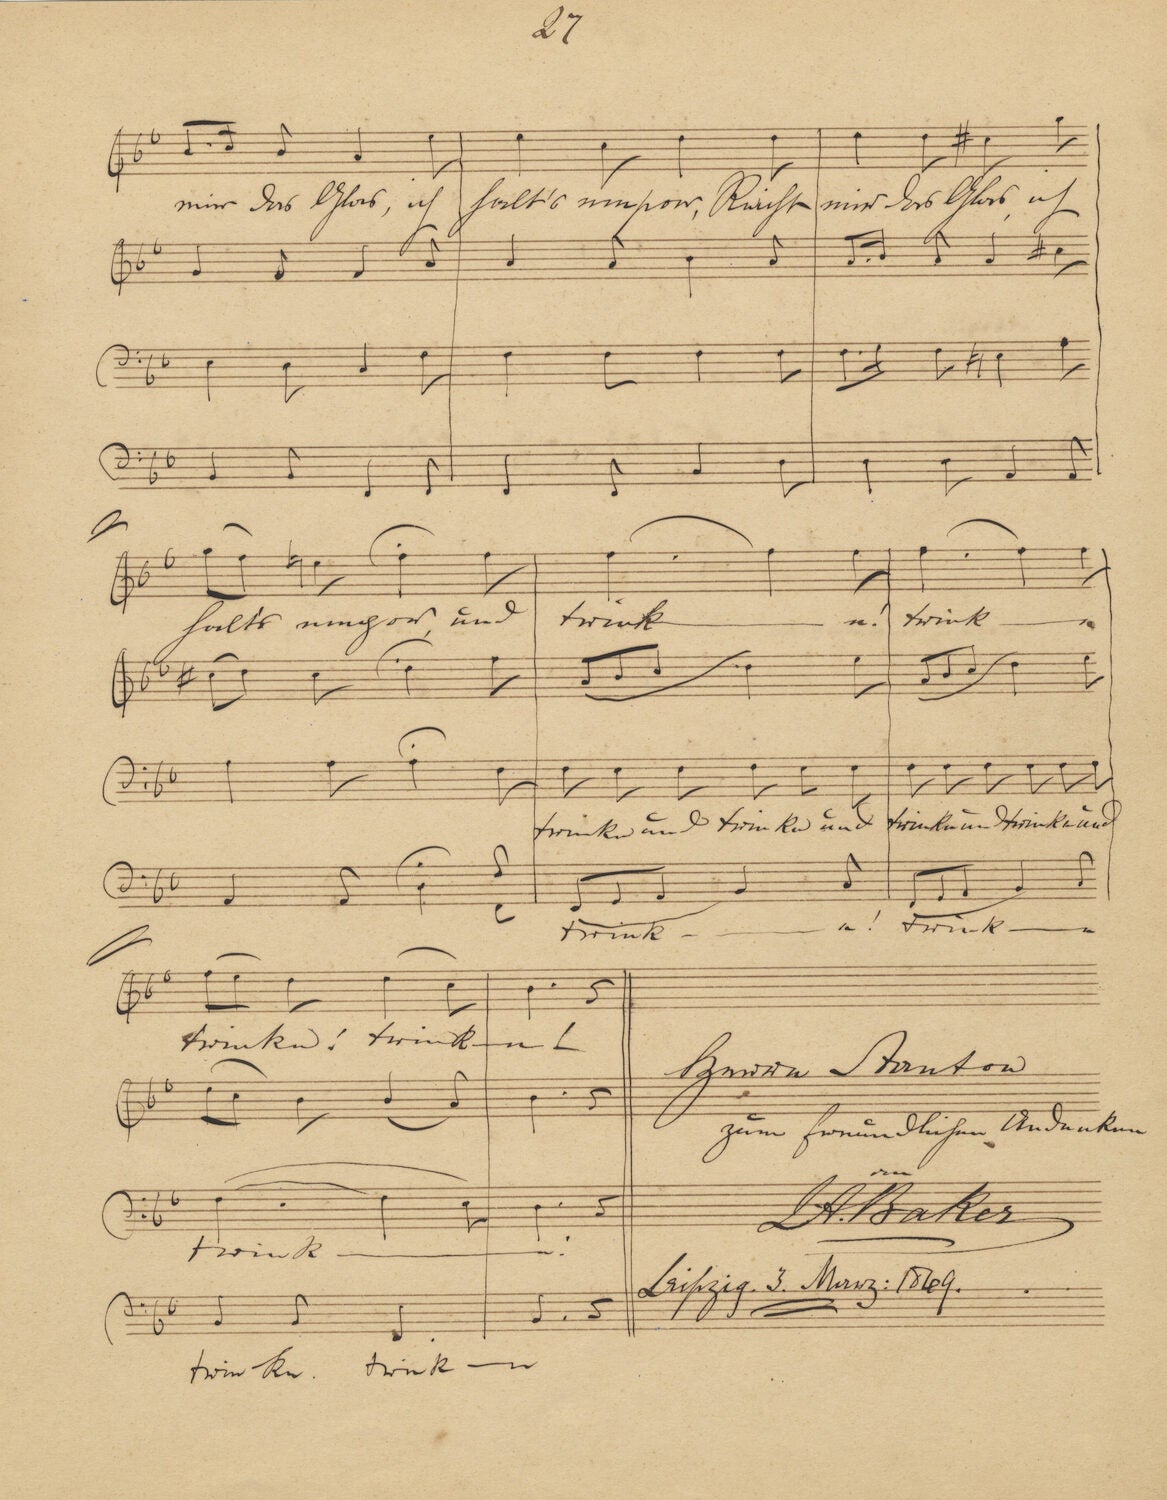 27
mir das Glas, ich halt's empor, Reicht mir das Glas, ich
halt's empor, und trink — e! trink — e
trinke und trinke und trinke und trinke und
trink — — e! trink — e
trinke! trink — e!
Herrn Stanton
zum freundlichen Andenken
an
trink — e!
L A. Baker
Leipzig. 3. Marz: 1869.
trin ke. trink — e